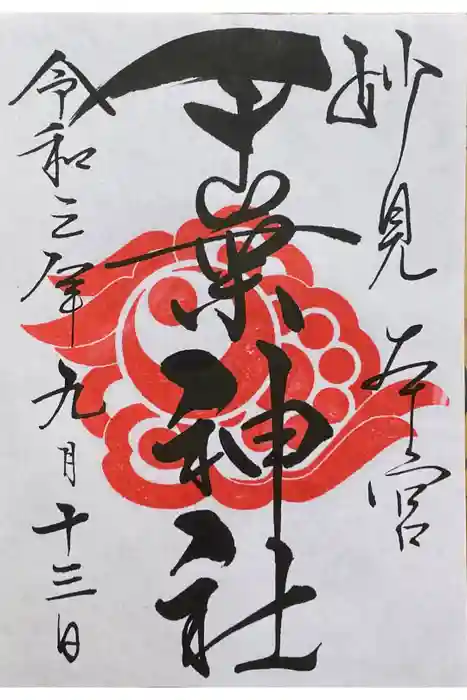 妙見本宮
千葉神社
令和三年九月十三日